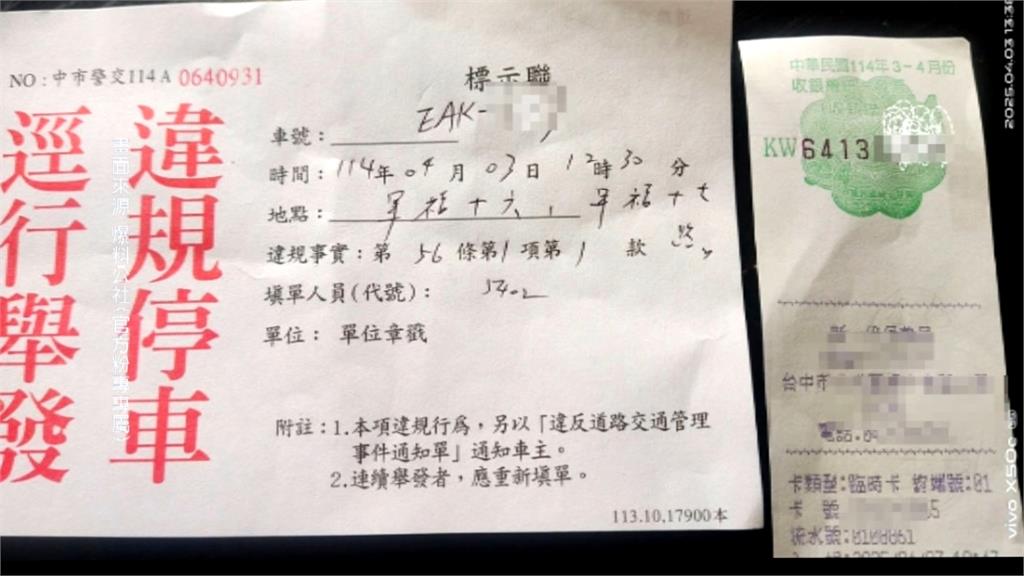 NO:中市警交114A 0640931
標示聯
違規停車
逕行舉發
車號: EAK-
時間:114年04月03日12時30分
地點: 軍福十六,軍福十七路
違規事實:第56條第1項第1款
填單人員(代號): 5402
單位: 單位章戳
附註:1.本項違規行為,另以「違反道路交通管理
事件通知單」通知車主。
2.連續舉發者,應重新填單。
113.10.17900本
畫面來源 爆料公社(官方粉專專頁)
中華民國114年3-4月份
收銀機
KW6413
台中市
電話:
卡類型:臨時卡 終端號:01
卡 號 5
流水號:0100091
2025.04.03 13:38
vivo X50e